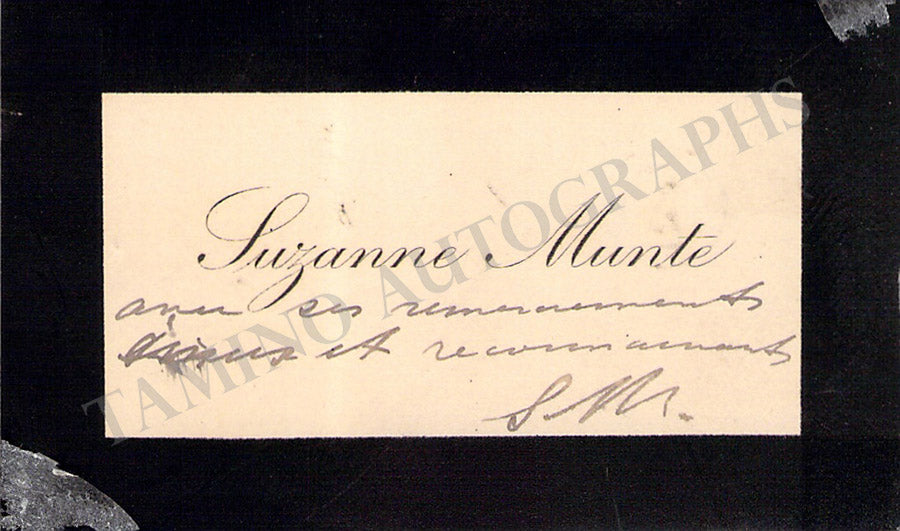 Suzanne Munte
avec ses remerciements
et reconnaissants
S. M.
TAMINO AUTOGRAPHS